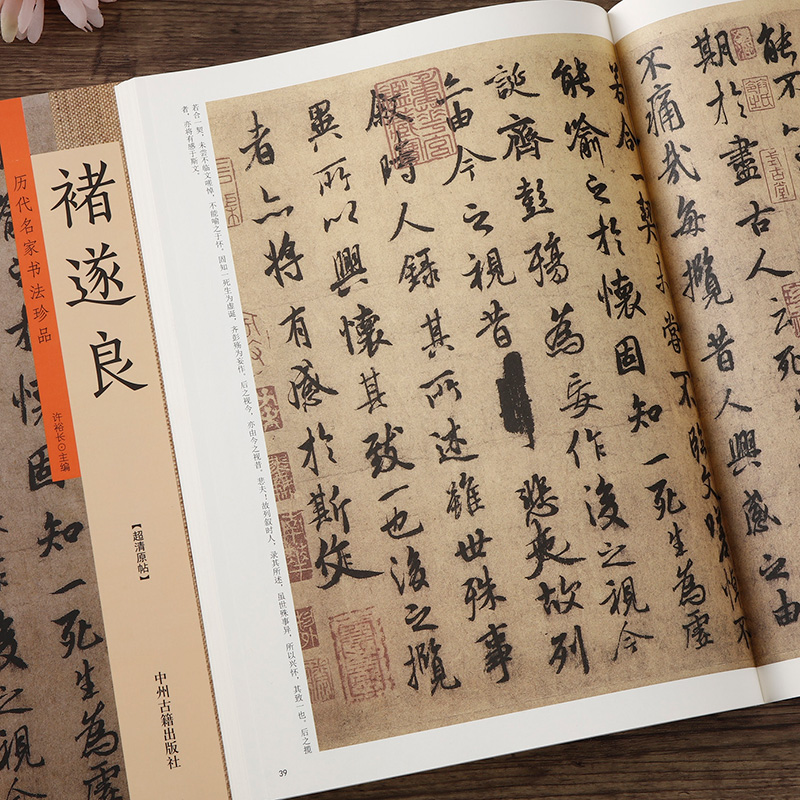 历代名家书法珍品
褚遂良
许裕长⊙主编
【超清原帖】
中州古籍出版社
能不
期於盡古人云死
不痛哉每攬昔人興感之由
若合一契未嘗不臨文嗟悼不
能喻之於懷固知一死生為虛
誕齊彭殤為妄作後之視今
亦由今之視昔悲夫故列
敘時人錄其所述雖世殊事
異所以興懷其致一也後之攬
者亦將有感於斯文
若合一契，未尝不临文嗟悼，不能喻之于怀。固知一死生为虚诞，齐彭殇为妄作。后之视今，亦由今之视昔，悲夫！故列叙时人，录其所述，虽世殊事异，所以兴怀，其致一也。后之揽
者，亦将有感于斯文。
39